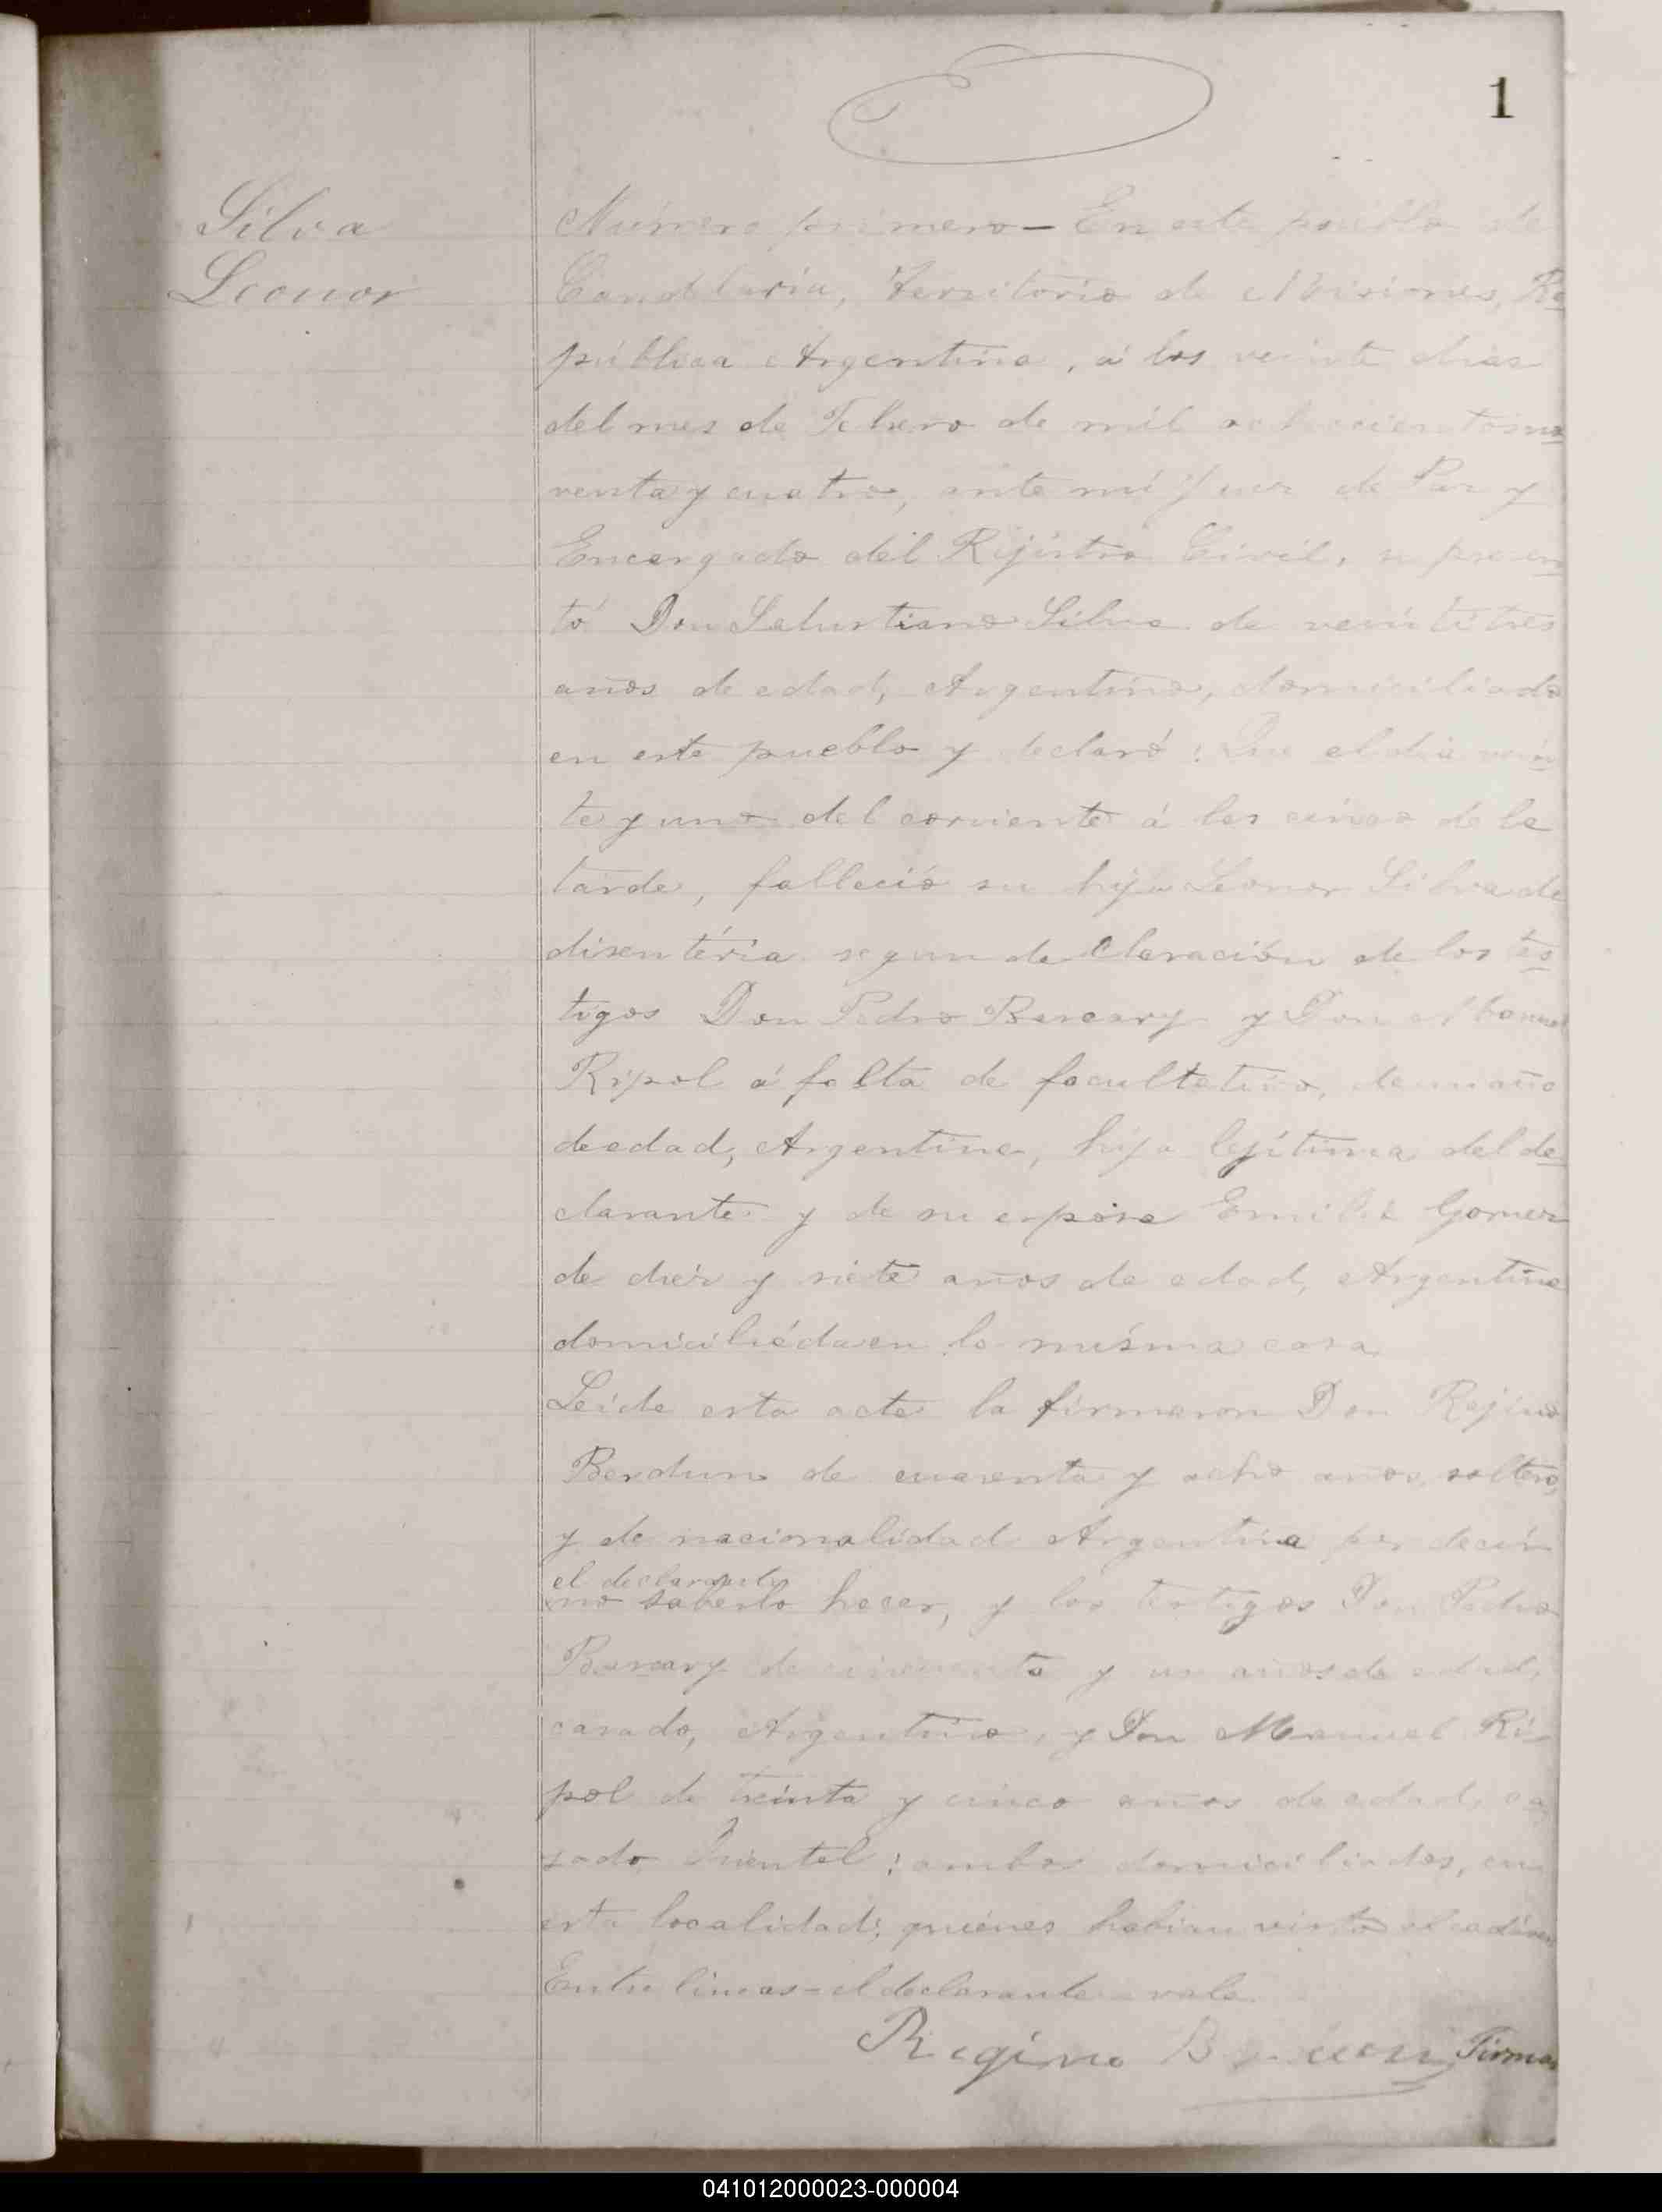 1
Silva
Leonor
Número primero — En este pueblo de
Candelaria, Territorio de Misiones, Re
pública Argentina, á los veinte dias
del mes de Febrero de mil ochocientos no
venta y cuatro, ante mí Juez de Paz y
Encargado del Rejistro Civil, se presen
tó Don Salustiano Silva de veintitres
años de edad, Argentino, domiciliado
en este pueblo y declaró: Que el dia vein
te y uno del corriente á las cinco de la
tarde, falleció su hija Leonor Silva de
disentéria segun declaración de los tes
tigos Don Pedro y Don Manuel
Ripol á falta de facultativo, de un año
de edad, Argentina, hija lejítima del de
clarante y de su esposa Emilia Gomez
de diez y siete años de edad, Argentina
domiciliada en la misma casa
Leida esta acta la firmaron Don Rejino
Berdun de cuarenta y ocho años, soltero,
y de nacionalidad Argentina por decir
el declarante
no saberlo hacer, y los testigos Don Pedro
de cincuenta y un años de edad,
casado, Argentino, y Don Manuel Ri
pol de treinta y cinco años de edad, ca
sado, Oriental; ambos domiciliados, en
esta localidad; quiénes habian visto el cadáver
Entre lineas = el declarante = vale
Regino Firmas
041012000023-000004